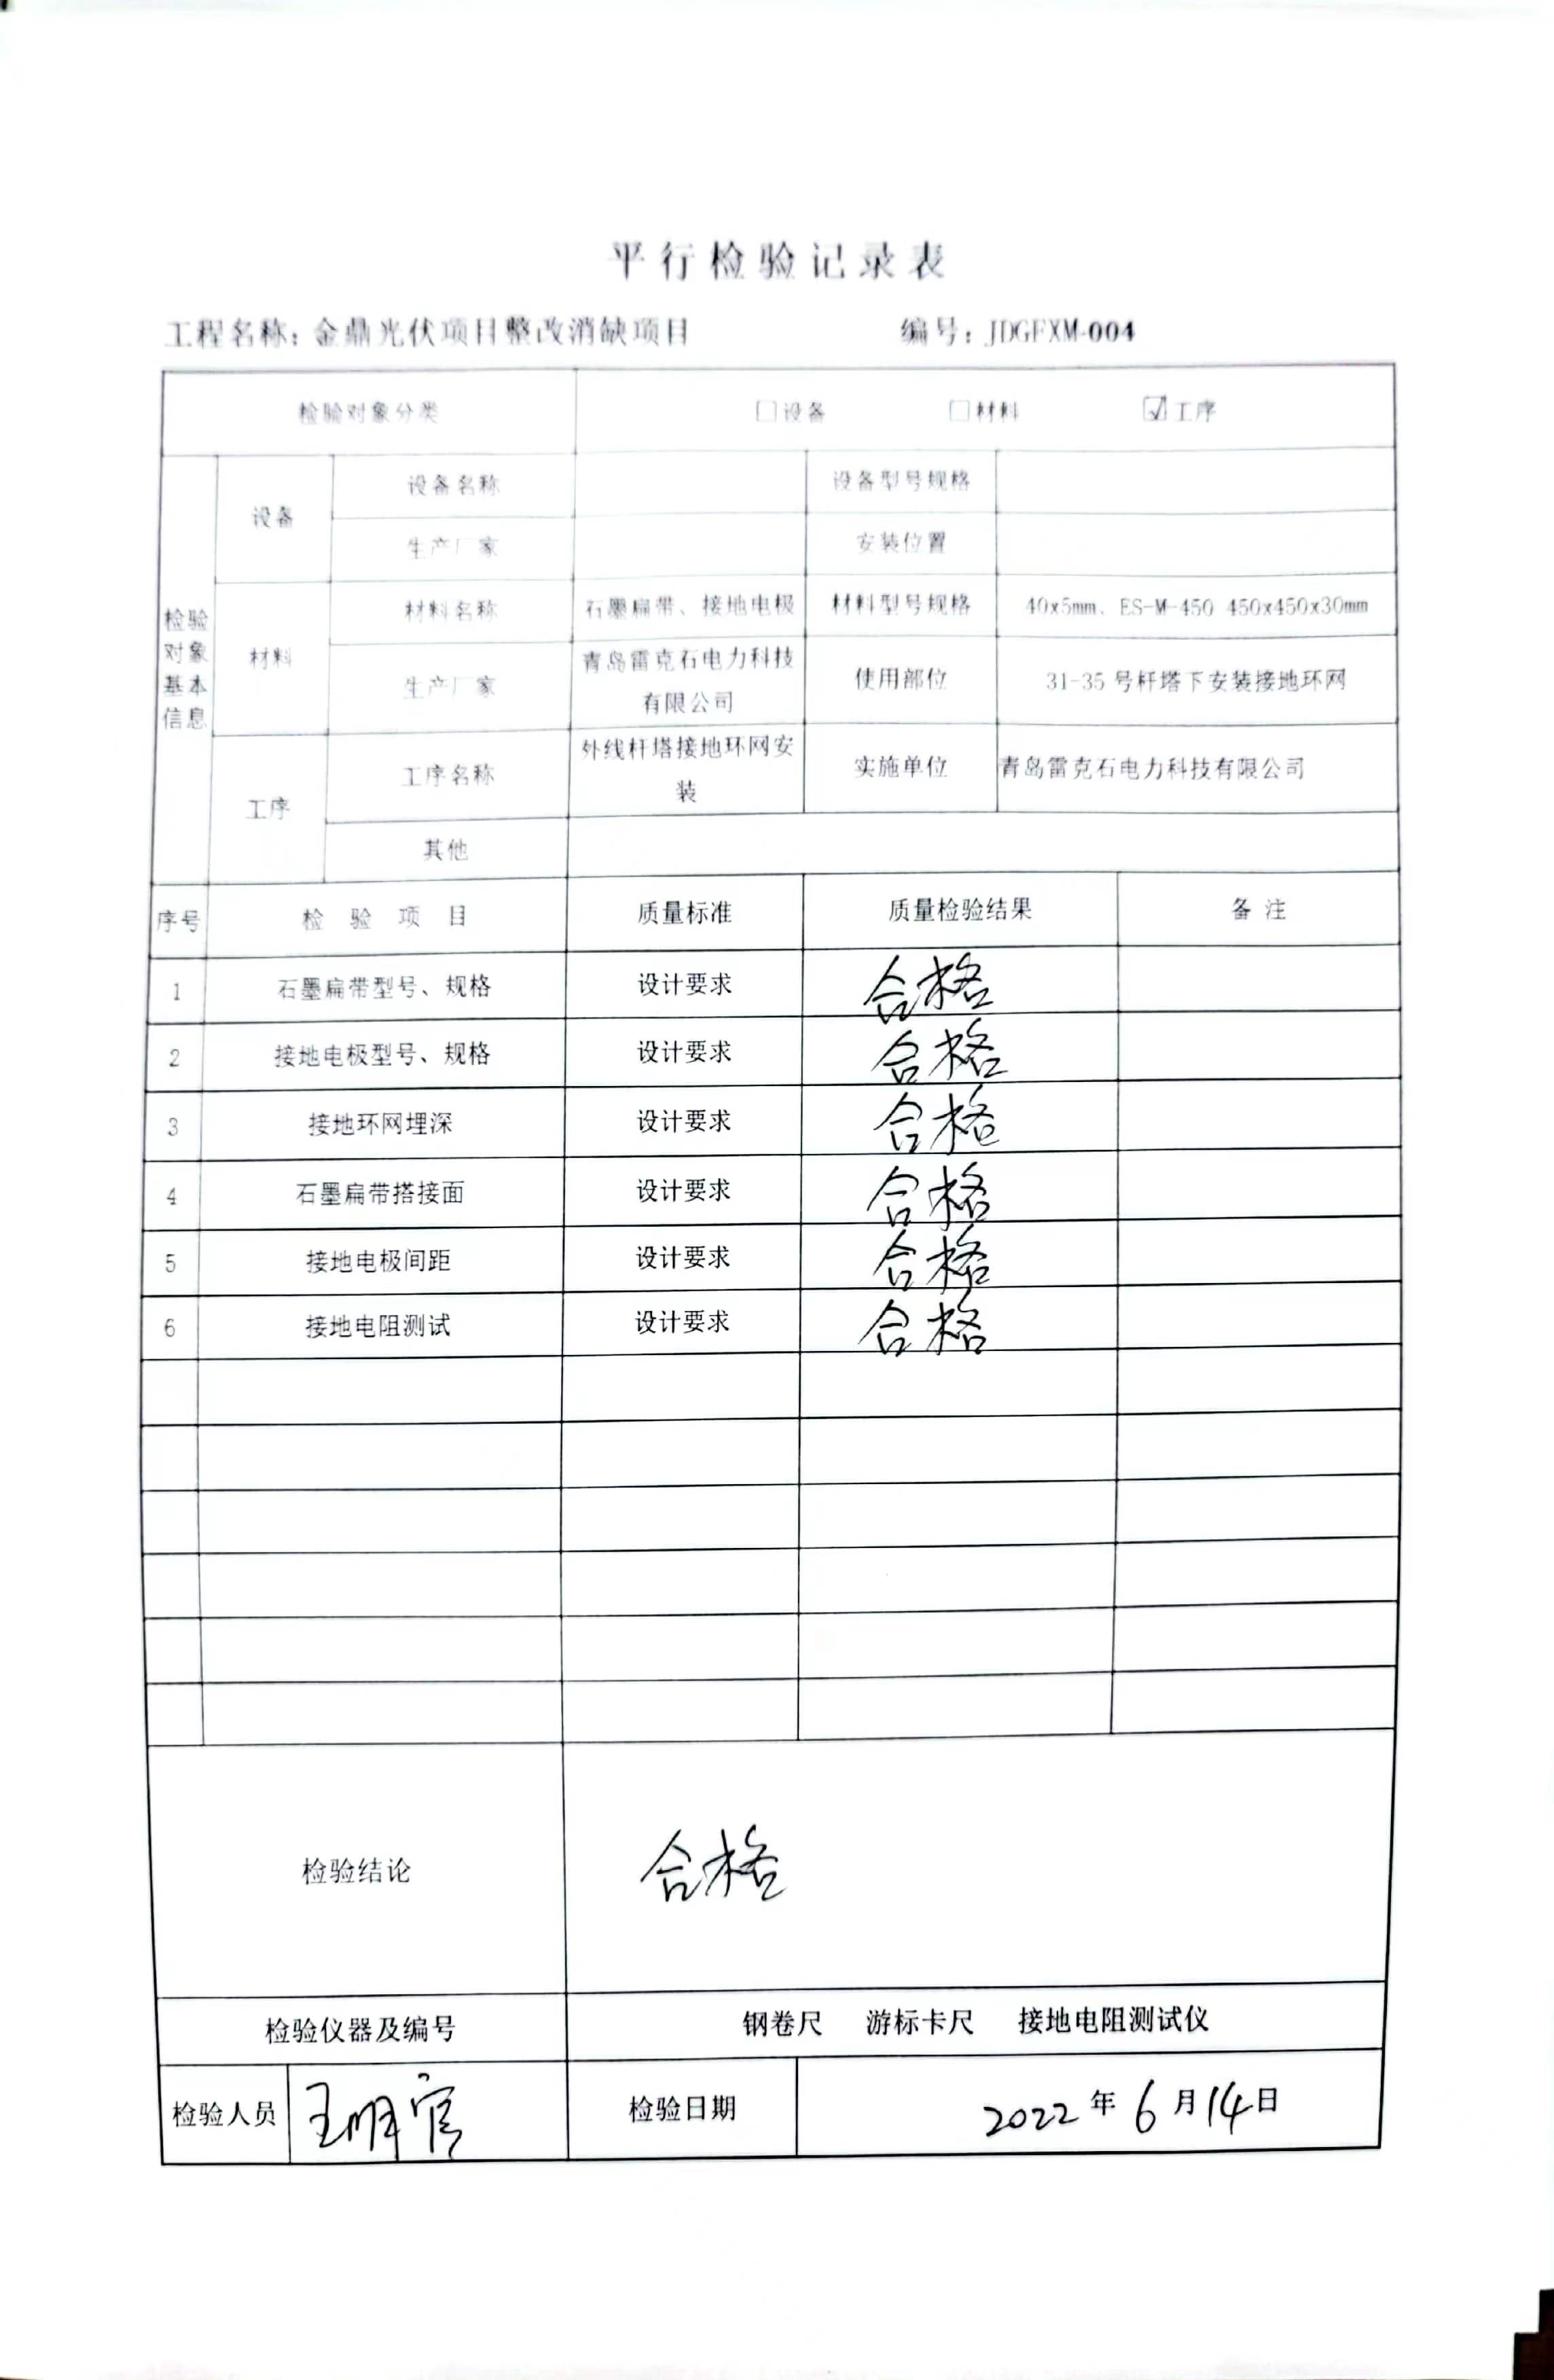 平行检验记录表
工程名称：金鼎光伏项目整改消缺项目 编号：JDGFXM-004
检验对象分类 □设备 □材料 ☑工序
检验对象基本信息
设备 设备名称 设备型号规格
生产厂家 安装位置
材料 材料名称 石墨扁带、接地电极 材料型号规格 40x5mm、ES-M-450 450x450x30mm
生产厂家 青岛雷克石电力科技有限公司 使用部位 31-35号杆塔下安装接地环网
工序 工序名称 外线杆塔接地环网安装 实施单位 青岛雷克石电力科技有限公司
其他
序号 检验项目 质量标准 质量检验结果 备注
1 石墨扁带型号、规格 设计要求 合格
2 接地电极型号、规格 设计要求 合格
3 接地环网埋深 设计要求 合格
4 石墨扁带搭接面 设计要求 合格
5 接地电极间距 设计要求 合格
6 接地电阻测试 设计要求 合格
检验结论 合格
检验仪器及编号 钢卷尺 游标卡尺 接地电阻测试仪
检验人员 王明官 检验日期 2022年6月14日